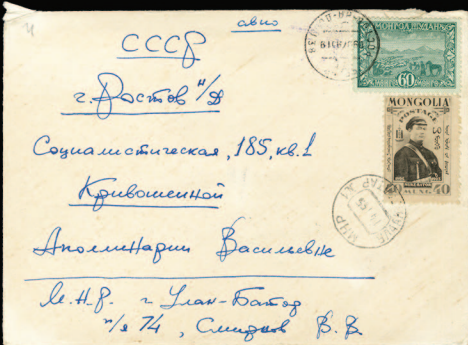 авио
СССР
г. Ростов н/Д
Социалистическая, 185, кв. 1
Кривошеиной
Аполлинарии Васильевне
М.Н.Р. г. Улан-Батор
п/я 74, Смирнов В. В.
МОНГОЛ ШУДАН
60
MONGOLIA
POSTAGE
40 40
МНР